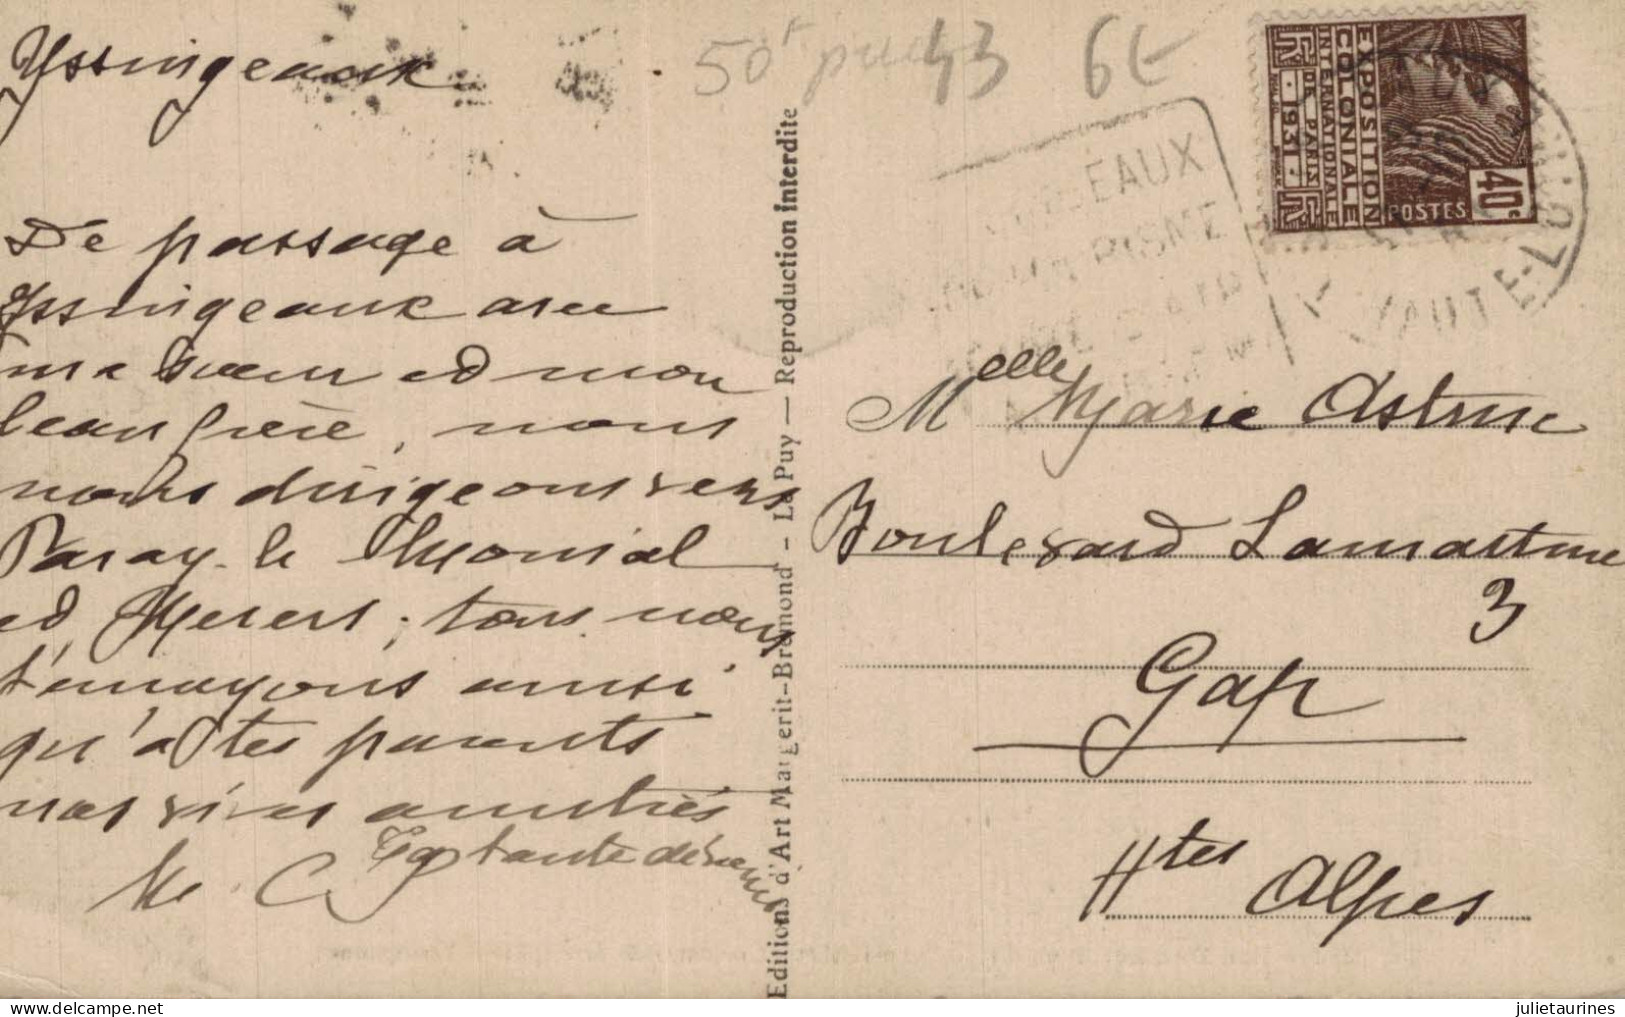 Yssingeaux
De passage à
Yssingeaux avec
ma sœur et mon
beau frère, nous
nous dirigeons vers
Paray-le Monial
et Nevers; tous nous
t'envoyons ainsi
qu'à tes parents
nos vives amitiés
Ta tante dévouée
M. C
Editions d'Art Margerit-Brémond - Le Puy — Reproduction interdite
50f 43 6€
EXPOSITION
COLONIALE
INTERNATIONALE
DE PARIS
RF · 1931 · RF
POSTES 40c
EAUX
RISME
HAUTE-
Melle Marie Astruc
Boulevard Lamartine
3
Gap
Htes Alpes
julietaurines